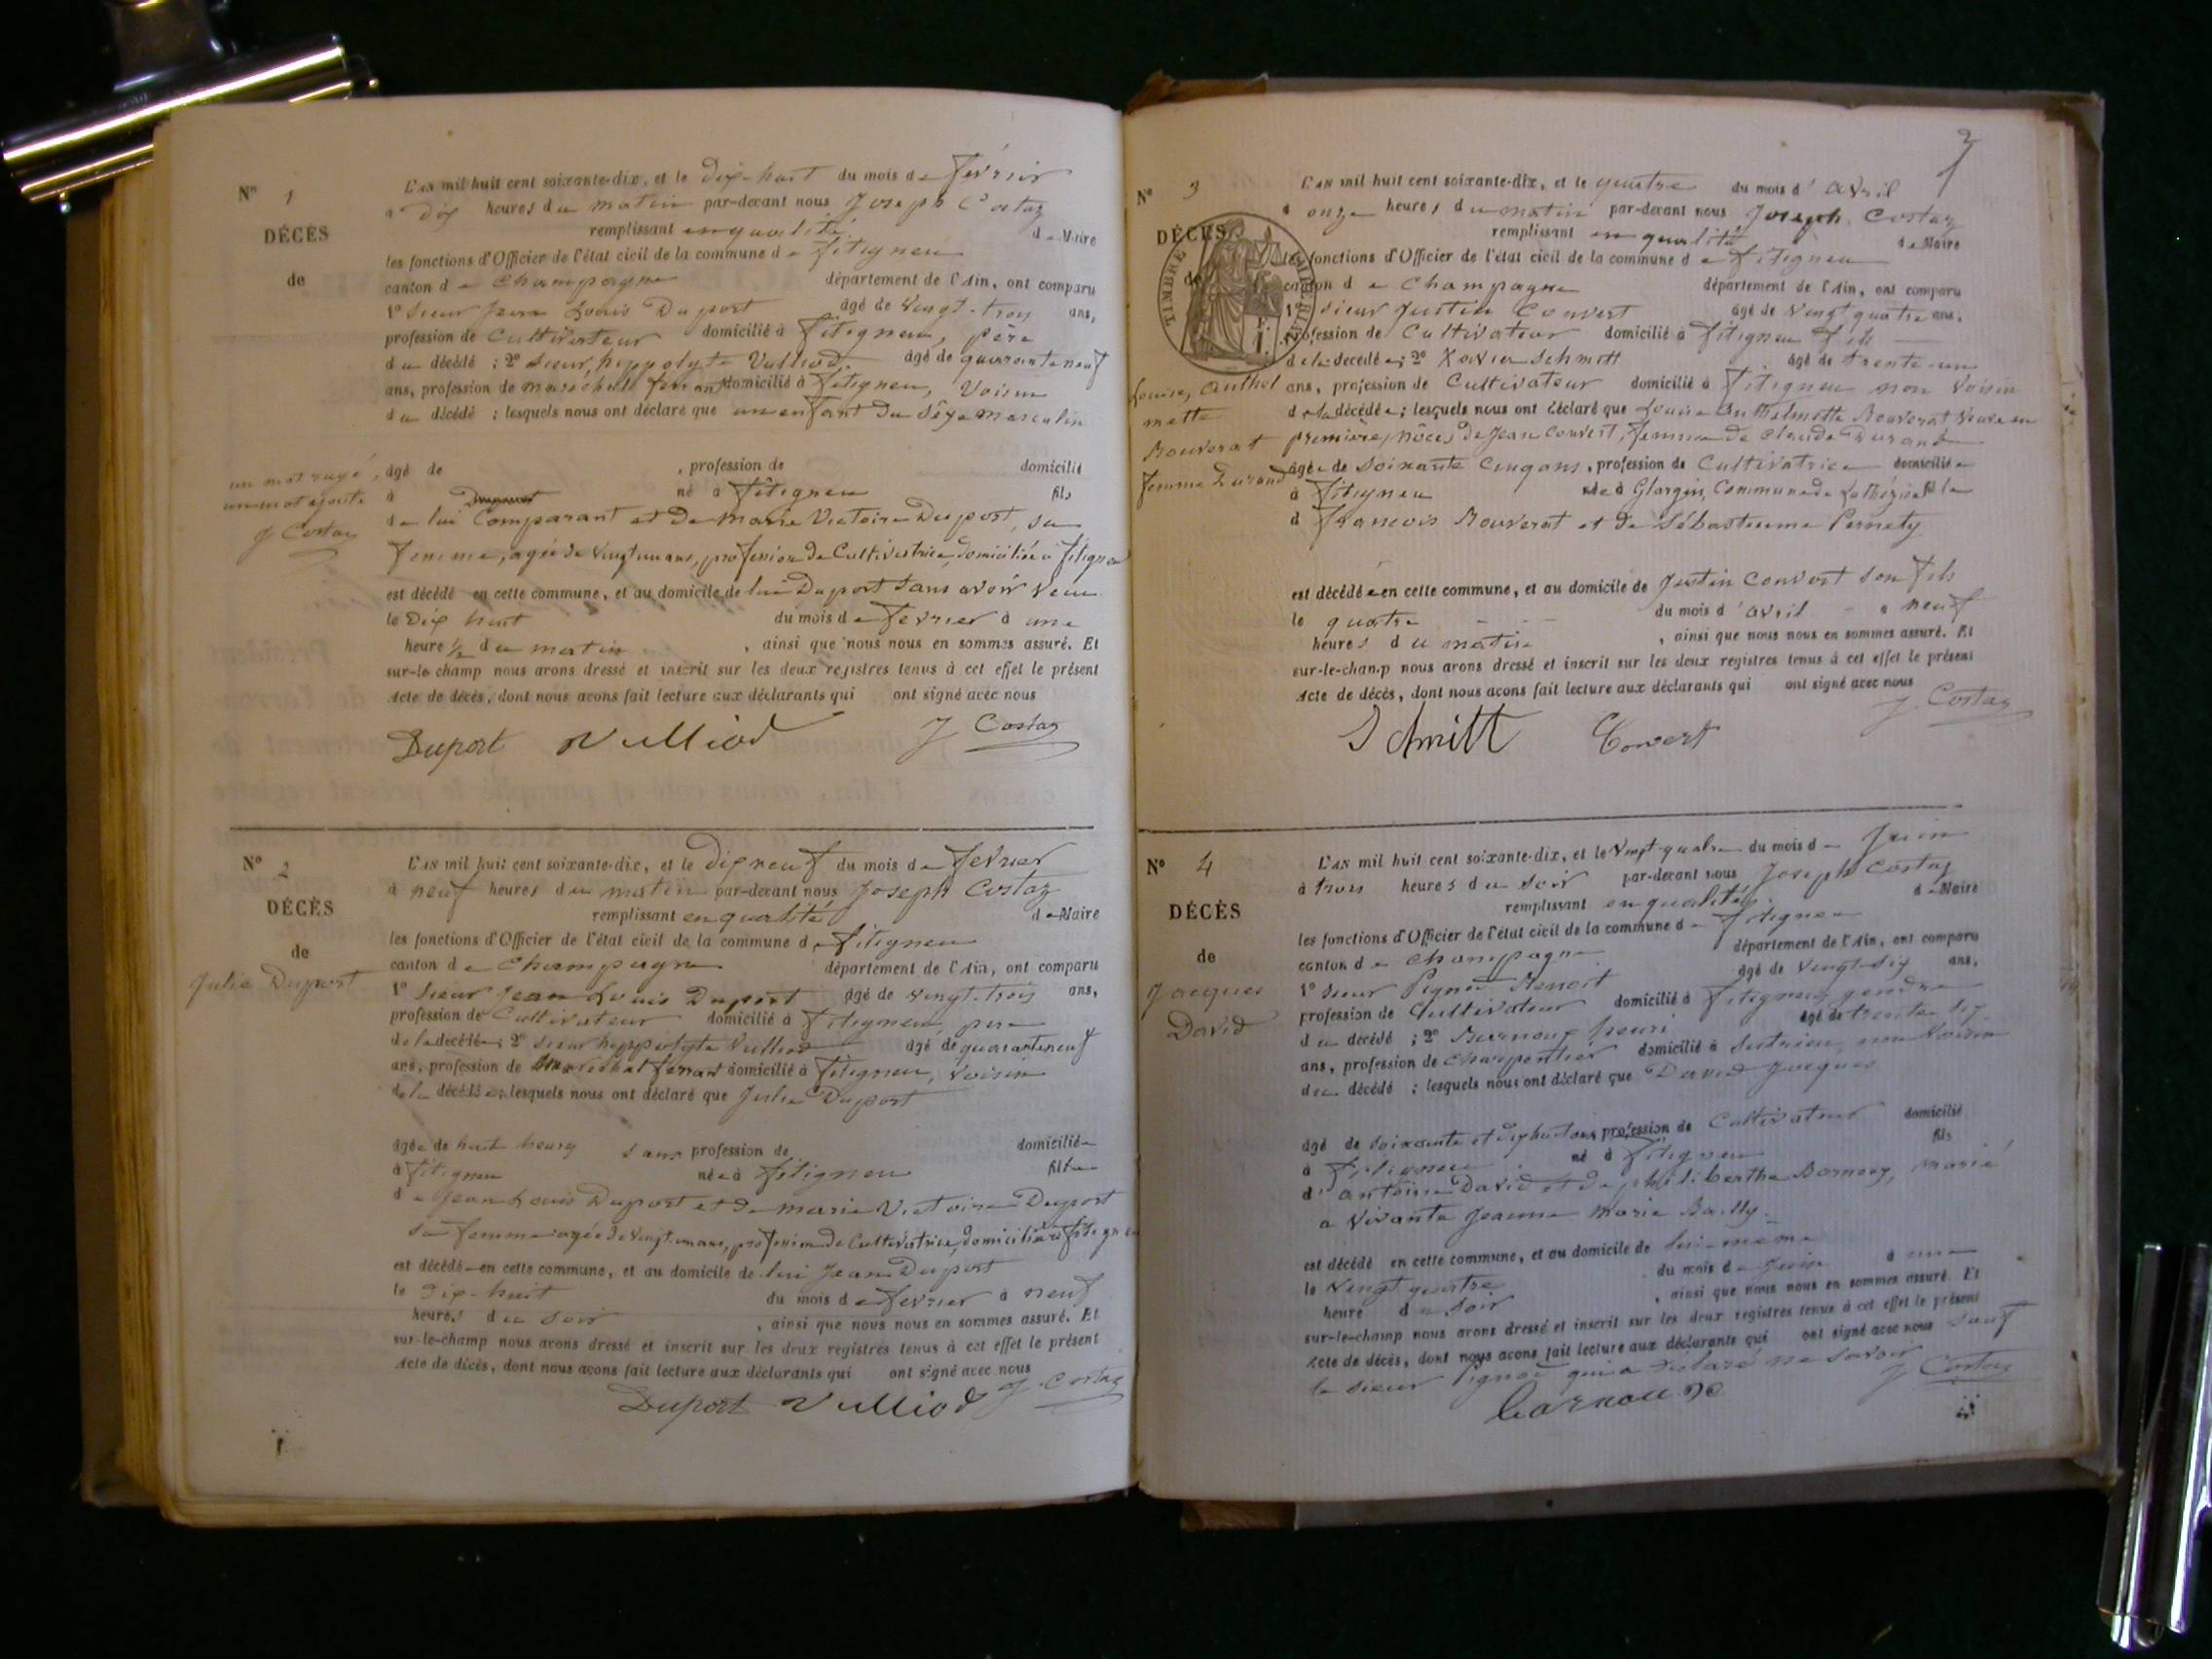 N° 1
DÉCÈS
de
L'AN mil huit cent soixante-dix, et le dix-huit du mois de février
à dix heures du matin par-devant nous Joseph Costaz
remplissant en qualité de Maire
les fonctions d'Officier de l'état civil de la commune de fitigneu
canton de Champagne département de l'Ain, ont comparu
1° sieur Jean Louis Duport âgé de vingt-trois ans,
profession de Cultivateur domicilié à fitigneu, père
du décédé ; 2° sieur, hippolyte Vulliod, âgé de quarante neuf
ans, profession de marechal ferrant domicilié à fitigneu, Voisin
du décédé ; lesquels nous ont déclaré que un enfant du sêxe masculin
âgé de , profession de domicilié
un mot rayé,
un mot ajouté
J Costaz
à né à fitigneu fils
de lui Comparant et de marie Victoire Duport, sa
femme, agée de vingt un ans, profession de Cultivatrice, domiciliée à fitigneu
est décédé en cette commune, et au domicile de lui Duport sans avoir vécu
le dix huit du mois de fevrier à une
heure 1/2 du matin , ainsi que nous nous en sommes assuré. Et
sur-le-champ nous avons dressé et inscrit sur les deux registres tenus à cet effet le présent
Acte de décès, dont nous avons fait lecture aux déclarants qui ont signé avec nous
Duport Vulliod J Costaz
N° 2
DÉCÈS
de
Julie Duport
L'AN mil huit cent soixante-dix, et le dix neuf du mois de fevrier
à neuf heures du matin par-devant nous Joseph Costaz
remplissant en qualité de Maire
les fonctions d'Officier de l'état civil de la commune de fitigneu
canton de Champagne département de l'Ain, ont comparu
1° sieur Jean Louis Duport âgé de vingt-trois ans,
profession de Cultivateur domicilié à fitigneu, pere
de la décédée ; 2° sieur hippolyte Vulliod âgé de quarante neuf
ans, profession de marechal ferrant domicilié à fitigneu, Voisin
de la décédée ; lesquels nous ont déclaré que Julie Duport
âgée de huit heures sans profession de domiciliée
à fitigneu née à fitigneu fille
de Jean Louis Duport et de marie Victoire Duport
sa femme agée de vingt-un ans, profession de Cultivatrice, domiciliée à fitigneu
est décédée en cette commune, et au domicile de lui Jean Duport
le dix-huit du mois de fevrier à neuf
heures du soir , ainsi que nous nous en sommes assuré. Et
sur-le-champ nous avons dressé et inscrit sur les deux registres tenus à cet effet le présent
Acte de décès, dont nous avons fait lecture aux déclarants qui ont signé avec nous
Duport Vulliod J. Costaz
3
N° 3
DÉCÈS
de
TIMBRE IMPÉRIAL
Louise, Anthel
mette
Rouverat
femme Durand
L'AN mil huit cent soixante-dix, et le quatre du mois d'avril
à onze heures du matin par-devant nous Joseph Costaz
remplissant en qualité de Maire
les fonctions d'Officier de l'état civil de la commune de fitigneu
canton de Champagne département de l'Ain, ont comparu
1° sieur Justin Convert âgé de vingt quatre ans,
profession de Cultivateur domicilié à fitigneu fils
de la décédée ; 2° Xavier Schmitt âgé de trente-un
ans, profession de Cultivateur domicilié à fitigneu non Voisin
de la décédée ; lesquels nous ont déclaré que Louise Anthelmette Rouverat, Veuve en
première, nôces de Jean Convert, femme de Claude Durand
âgée de soixante cinq ans, profession de Cultivatrice domiciliée
à fitigneu née à Glargin, Commune de fille
d francois Rouverat et de Sébastienne Pernety
est décédée en cette commune, et au domicile de Justin Convert son fils
le quatre du mois d'avril à neuf
heures du matin , ainsi que nous nous en sommes assuré. Et
sur-le-champ nous avons dressé et inscrit sur les deux registres tenus à cet effet le présent
Acte de décès, dont nous avons fait lecture aux déclarants qui ont signé avec nous
Schmitt Convert J. Costaz
N° 4
DÉCÈS
de
Jacques
David
L'AN mil huit cent soixante-dix, et le vingt-quatre du mois de Juin
à trois heures du soir par-devant nous Joseph Costaz
remplissant en qualité de Maire
les fonctions d'Officier de l'état civil de la commune de fitigneu
canton de Champagne département de l'Ain, ont comparu
1° sieur Pignod Benoit âgé de vingt-six ans,
profession de Cultivateur domicilié à fitigneu, gendre
du décédé ; 2° henri âgé de trente six
ans, profession de charpentier domicilié à Sutrieu, non Voisin
du décédé ; lesquels nous ont déclaré que David Jacques
âgé de soixante et dix huit ans, profession de Cultivateur domicilié
à fitigneu né à fitigneu fils
d'antoine David et de philiberthe marié
a vivante Jeanne marie Bailly
est décédé en cette commune, et au domicile de lui-même
le vingt quatre du mois de Juin à une
heure du soir , ainsi que nous nous en sommes assuré. Et
sur-le-champ nous avons dressé et inscrit sur les deux registres tenus à cet effet le présent
Acte de décès, dont nous avons fait lecture aux déclarants qui ont signé avec nous sauf
le sieur Pignod qui a déclaré ne savoir J Costaz